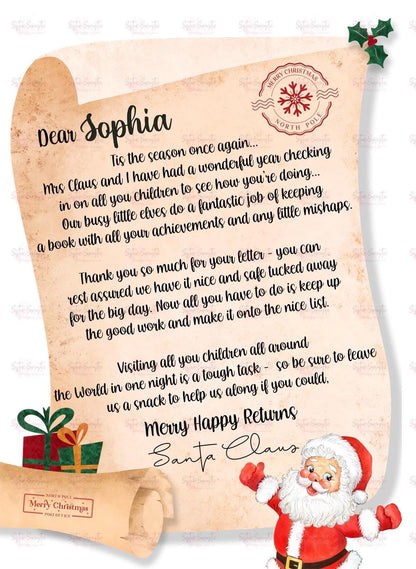 MERRY CHRISTMAS
NORTH POLE
Dear Sophia
Tis the season once again...
Mrs Claus and I have had a wonderful year checking
in on all you children to see how you're doing...
Our busy little elves do a fantastic job of keeping
a book with all your achievements and any little mishaps.
Thank you so much for your letter - you can
rest assured we have it nice and safe tucked away
for the big day. Now all you have to do is keep up
the good work and make it onto the nice list.
Visiting all you children all around
the World in one night is a tough task - so be sure to leave
us a snack to help us along if you could.
Merry Happy Returns
Santa Claus
NORTH POLE
Merry Christmas
POST OFFICE